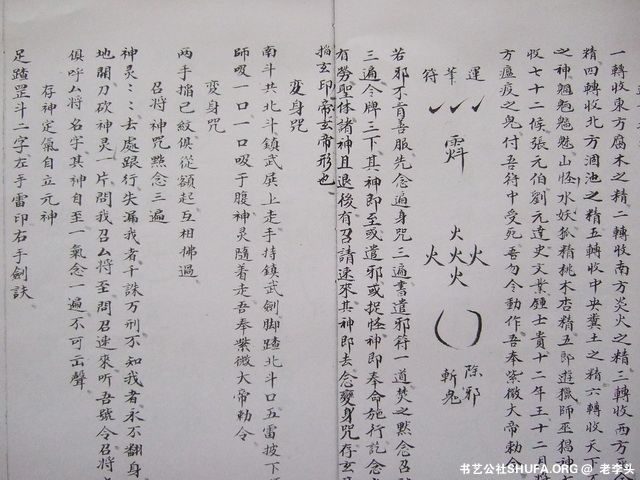 一轉收東方腐木之精二轉收南方炎火之精三轉收西方
精四轉收北方涸池之精五轉收中央糞土之精六轉收天下
之神魍魎魑魅山怪水妖狐精桃木杏精五郎遊獵師巫猖神
收七十二候張元伯劉元達史文業鍾士貴十二年王十二月將
方瘟疫之鬼付吾符中受死吾勿令動作吾奉紫微大帝勅令
運筆符
火火火火火
除邪
斬鬼
若邪不肯善服先念遍身咒三遍書遣邪符一道焚之黙念召
三遍令牌三下其神即至或遣邪或捉怪神即奉命施行訖念
有勞聖体諸神且退後有召請速來其神即去念變身咒存玄
掐玄印帝玄帝形也
變身咒
南斗共北斗鎮武展上走手持鎮武劍脚踏北斗口五雷披下
師吸一口一口吸于腹神灵隨着走吾奉紫微大帝勅令
變身咒
兩手掐己紋俱從額起互相拂過
召將神咒黙念三遍
神灵灵去處跟行失漏我者千誅万刑不知我者永不翻身
地開刀砍神灵一片問我召厶將至問召速來听吾號令召將
俱呼厶將名字其神自至一氣念一遍不可出聲
存神定氣自立元神
足踏罡斗二字左手雷印右手劍訣
书艺公社SHUFA.ORG @ 老李头